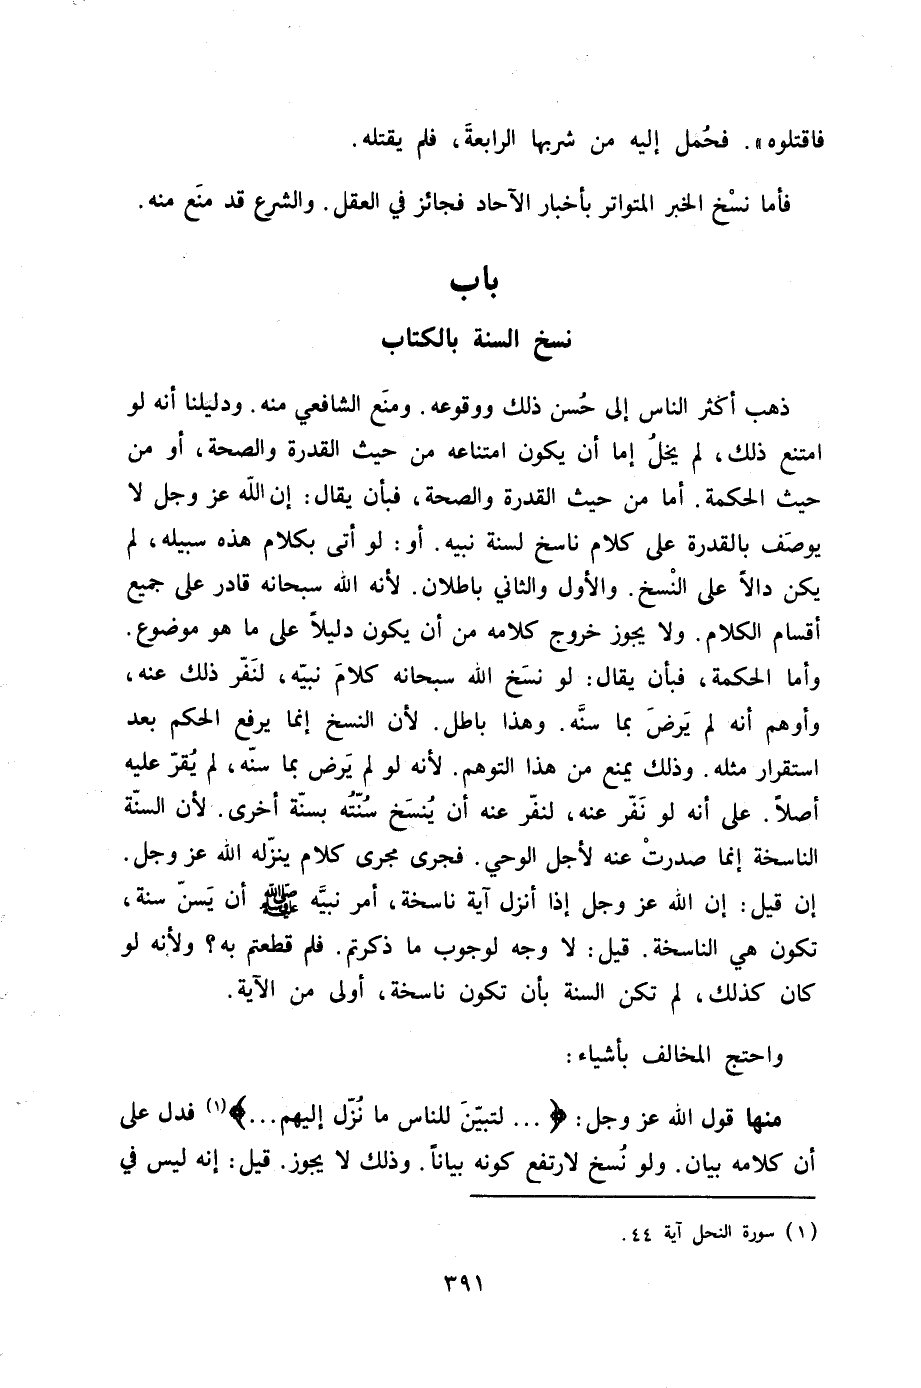 فاقتلوه». فحُمل إليه من شربها الرابعةَ، فلم يقتله.
فأما نسْخ الخبر المتواتر بأخبار الآحاد فجائز في العقل. والشرع قد منَع منه.
باب
نسخ السنة بالكتاب
ذهب أكثر الناس إلى حُسن ذلك ووقوعه. ومنَع الشافعي منه. ودليلنا أنه لو
امتنع ذلك، لم يخلُ إما أن يكون امتناعه من حيث القدرة والصحة، أو من
حيث الحكمة. أما من حيث القدرة والصحة، فبأن يقال: إن اللّه عز وجل لا
يوصَف بالقدرة على كلام ناسخ لسنة نبيه. أو: لو أتى بكلام هذه سبيله، لم
يكن دالاً على النْسخ. والأول والثاني باطلان. لأنه الله سبحانه قادر على جميع
أقسام الكلام. ولا يجوز خروج كلامه من أن يكون دليلاً على ما هو موضوع.
وأما الحكمة، فبأن يقال: لو نسَخ الله سبحانه كلامَ نبيّه، لنَفّر ذلك عنه،
وأوهم أنه لم يَرضَ بما سنَّه. وهذا باطل. لأن النسخ إنما يرفع الحكم بعد
استقرار مثله. وذلك يمنع من هذا التوهم. لأنه لو لم يَرض بما سنّه، لم يُقرّ عليه
أصلاً. على أنه لو نَفّر عنه، لنفّر عنه أن يُنسَخ سُنّتُه بسنّة أخرى. لأن السنّة
الناسخة إنما صدرتْ عنه لأجل الوحي. فجرى مجرى كلام ينزّله الله عز وجل.
إن قيل: إن الله عز وجل إذا أنزل آية ناسخة، أمر نبيَّه ﷺ أن يَسنّ سنة،
تكون هي الناسخة. قيل: لا وجه لوجوب ما ذكرتم. فلم قطعتم به؟ ولأنه لو
كان كذلك، لم تكن السنة بأن تكون ناسخة، أولى من الآية.
واحتج المخالف بأشياء:
منها قول الله عز وجل: ﴿... لتبيّنَ للناس ما نُزّل إليهم...﴾(١) فدل على
أن كلامه بيان. ولو نُسخ لارتفع كونه بياناً. وذلك لا يجوز. قيل: إنه ليس في
(١) سورة النحل آية ٤٤.
٣٩١